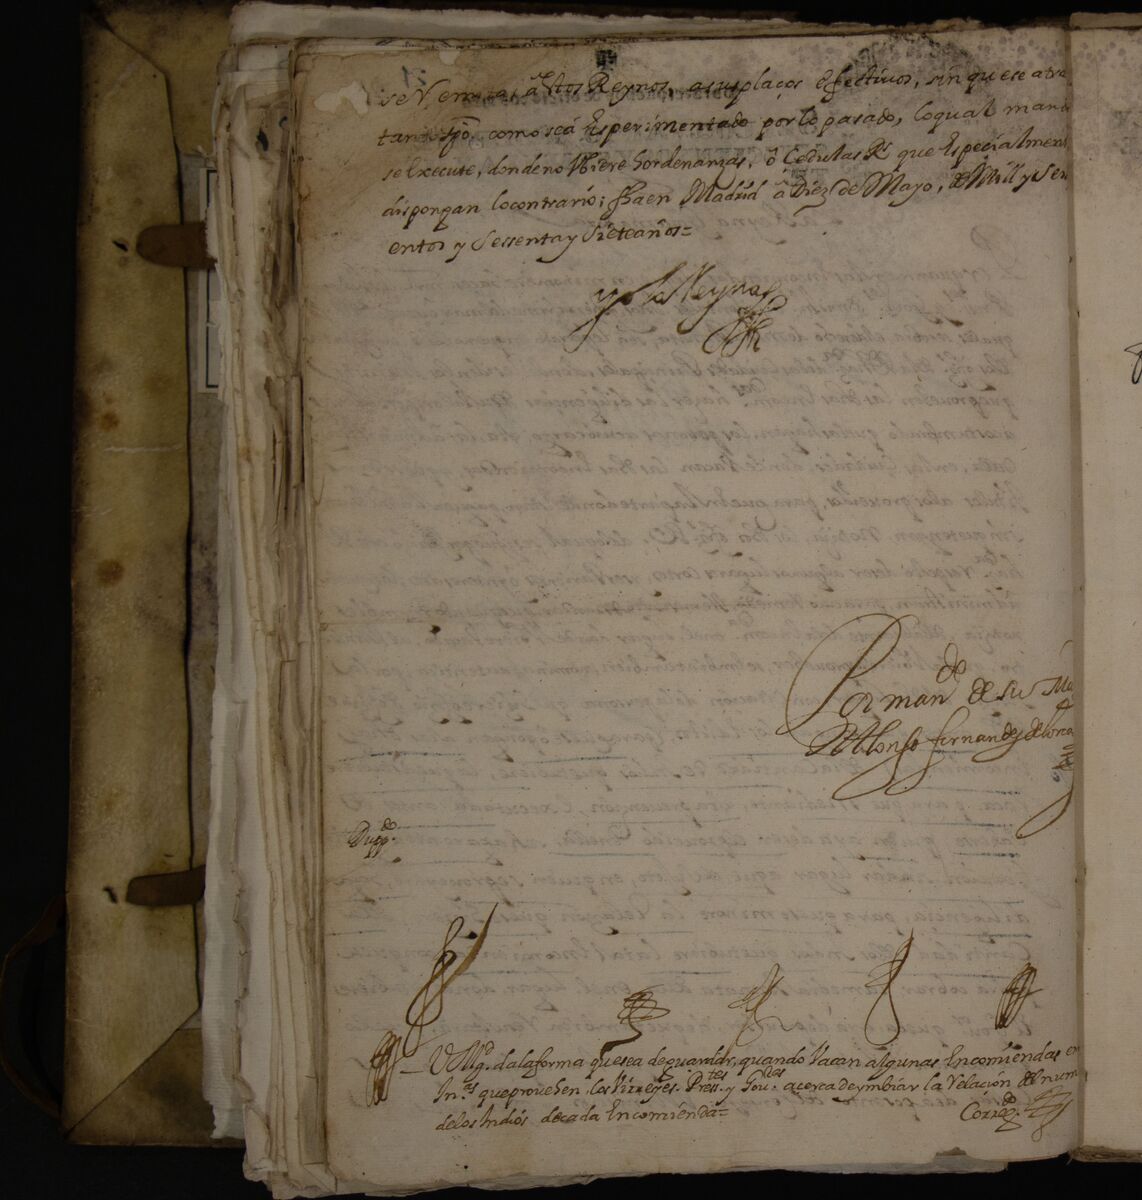 se Vemita, à estos Reynos, a sus plaços efectivos, sin que se atra
tanto tpõ. como sea Esperimentado por lo pasado, lo qual man
se Execute, donde no Vbiere hordenanzas, ô Cedulas Rs. que Especialmen
dispongan lo contrario; fha en Madrid â Diez de Mayo, de Mill y Seis
entos y Sessenta y Siete años=
yo la Reyna
Por mando de su Ma
D Alonso fernandez de lorca
Duppdo.
V Mgd. da la forma que sea de guardar, quando Vacan algunas Encomiendas en
Inas. que provehen los Virreyes, Pressntes. y Goures. acerca de ymbiar la Relacion del num
de los Indios de cada Encomienda=
Corrgdo.